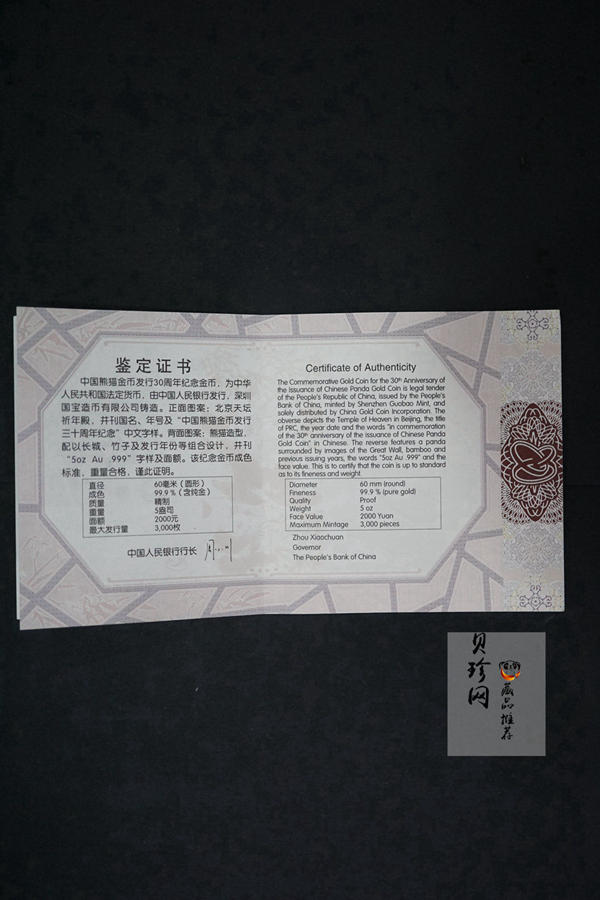 鉴定证书
中国熊猫金币发行30周年纪念金币，为中华
人民共和国法定货币，由中国人民银行发行，深圳
国宝造币有限公司铸造。正面图案：北京天坛
祈年殿，并刊国名、年号及“中国熊猫金币发行
三十周年纪念”中文字样。背面图案：熊猫造型，
配以长城、竹子及发行年份等组合设计，并刊
“5oz Au .999”字样及面额。该纪念金币成色
标准，重量合格，谨此证明。
直径 60毫米（圆形）
成色 99.9％（含纯金）
质量 精制
重量 5盎司
面额 2000元
最大发行量 3,000枚
中国人民银行行长
Certificate of Authenticity
The Commemorative Gold Coin for the 30th Anniversary of
the Issuance of Chinese Panda Gold Coin is legal tender
of the People's Republic of China, issued by the People's
Bank of China, minted by Shenzhen Guobao Mint, and
solely distributed by China Gold Coin Incorporation. The
obverse depicts the Temple of Heaven in Beijing, the title
of PRC, the year date and the words "in commemoration
of the 30th anniversary of the issuance of Chinese Panda
Gold Coin" in Chinese. The reverse features a panda
surrounded by images of the Great Wall, bamboo and
previous issuing years, the words "5oz Au .999" and the
face value. This is to certify that the coin is up to standard
as to its fineness and weight.
Diameter 60 mm (round)
Fineness 99.9 % (pure gold)
Quality Proof
Weight 5 oz
Face Value 2000 Yuan
Maximum Mintage 3,000 pieces
Zhou Xiaochuan
Governor
The People's Bank of China
贝珍网
藏品推荐